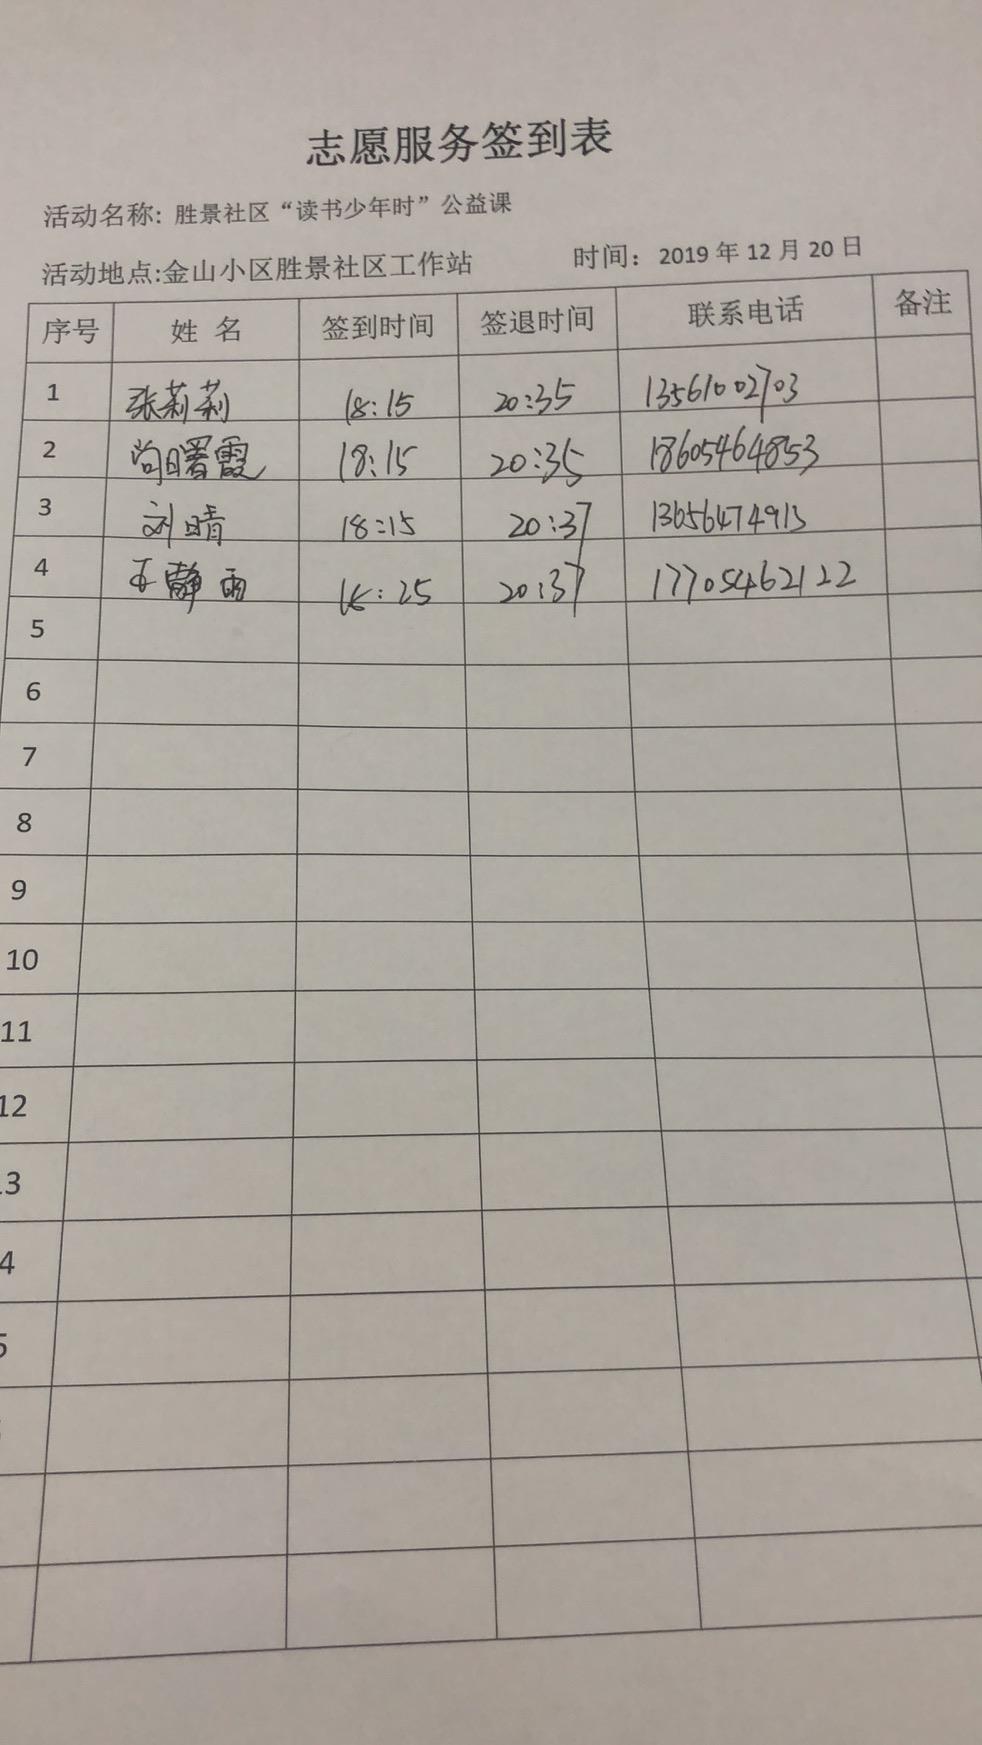 志愿服务签到表
活动名称: 胜景社区“读书少年时”公益课
活动地点:金山小区胜景社区工作站 时间：2019 年 12 月 20 日
序号 姓 名 签到时间 签退时间 联系电话 备注
1 张莉莉 18:15 20:35 13561002703
2 尚曙霞 18:15 20:35 18605464853
3 刘晴 18:15 20:37 13656474913
4 王静雨 20:37 17705462122
5
6
7
8
9
10
11
12